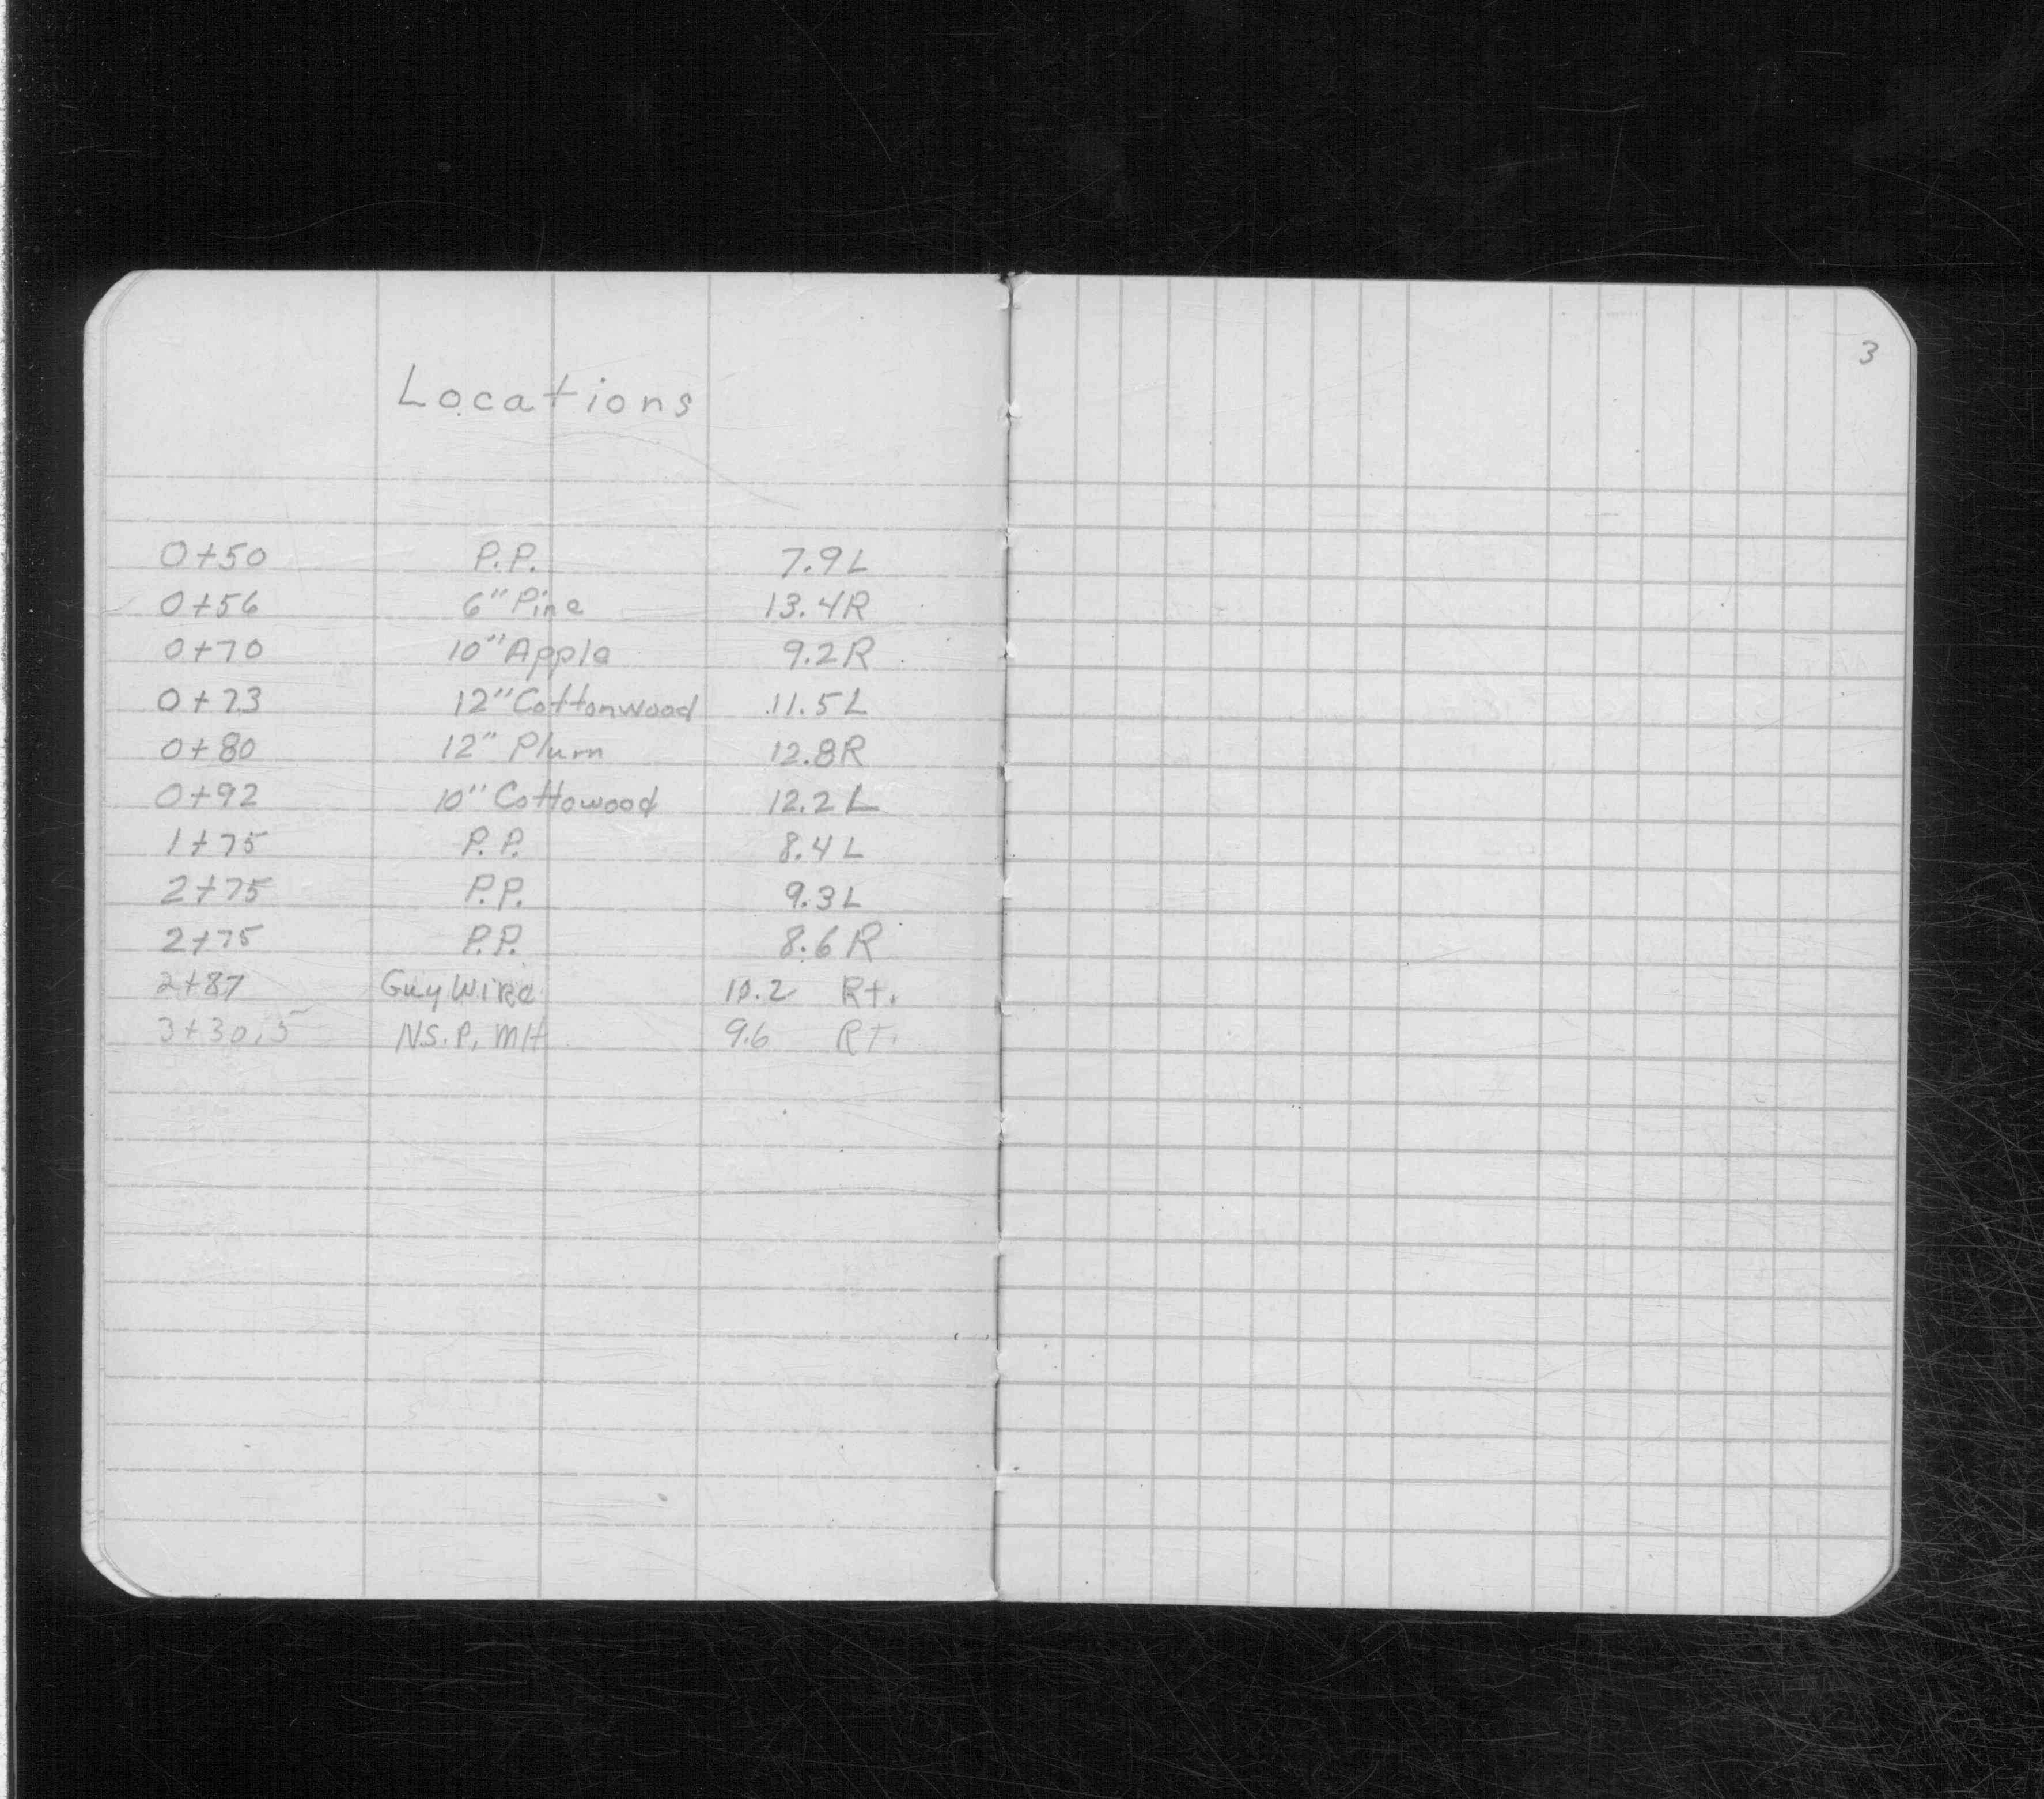 Locations
3
0+50 P.P. 7.9L
0+56 6" Pine 13.4R
0+70 10" Apple 9.2R
0+73 12" Cottonwood 11.5L
0+80 12" Plum 12.8R
0+92 10" Cottowood 12.2L
1+75 P.P. 8.4L
2+75 P.P. 9.3L
2+75 P.P. 8.6R
2+87 Guy Wire 10.2 Rt.
3+30.5 N.S.P. MH 9.6 Rt.